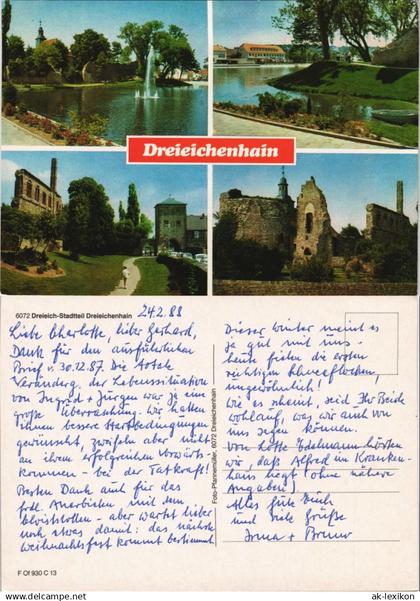 Dreieichenhain
6072 Dreieich-Stadtteil Dreieichenhain
24.2.88
Liebe Charlotte, lieber Gerhard,
Dank für den ausführlichen
Brief v. 30.12.87. Die totale
Veränderg. der Lebenssituation
von Ingrid + Jürgen war ja eine
große Überraschung. Wir hatten
ihnen bessere Startbedingungen
gewünscht, zweifeln aber nicht
an ihrem erfolgreichen Vorwärts-
kommen - bei der Tatkraft!
Besten Dank auch für das
frdl. Anerbieten mit dem
- aber wartet lieber
noch etwas damit: das nächste
Weihnachtsfest kommt bestimmt
Foto-Pfannemüller, 6072 Dreieichenhain
Dieser Winter meint es
ja gut mit uns -
heute fielen die ersten
richtigen Schneeflocken,
ungewöhnlich!
Wie es scheint, seid Ihr Beide
wohlauf, was wir auch von
uns sagen können.
Von Lotte Edelmann hörten
wir, daß Alfred im Kranken-
haus liegt (ohne nähere
Angaben)
Alles Gute Euch
und viele Grüße
Irma + Bruno
F Of 930 C 13
© ak-lexikon.com